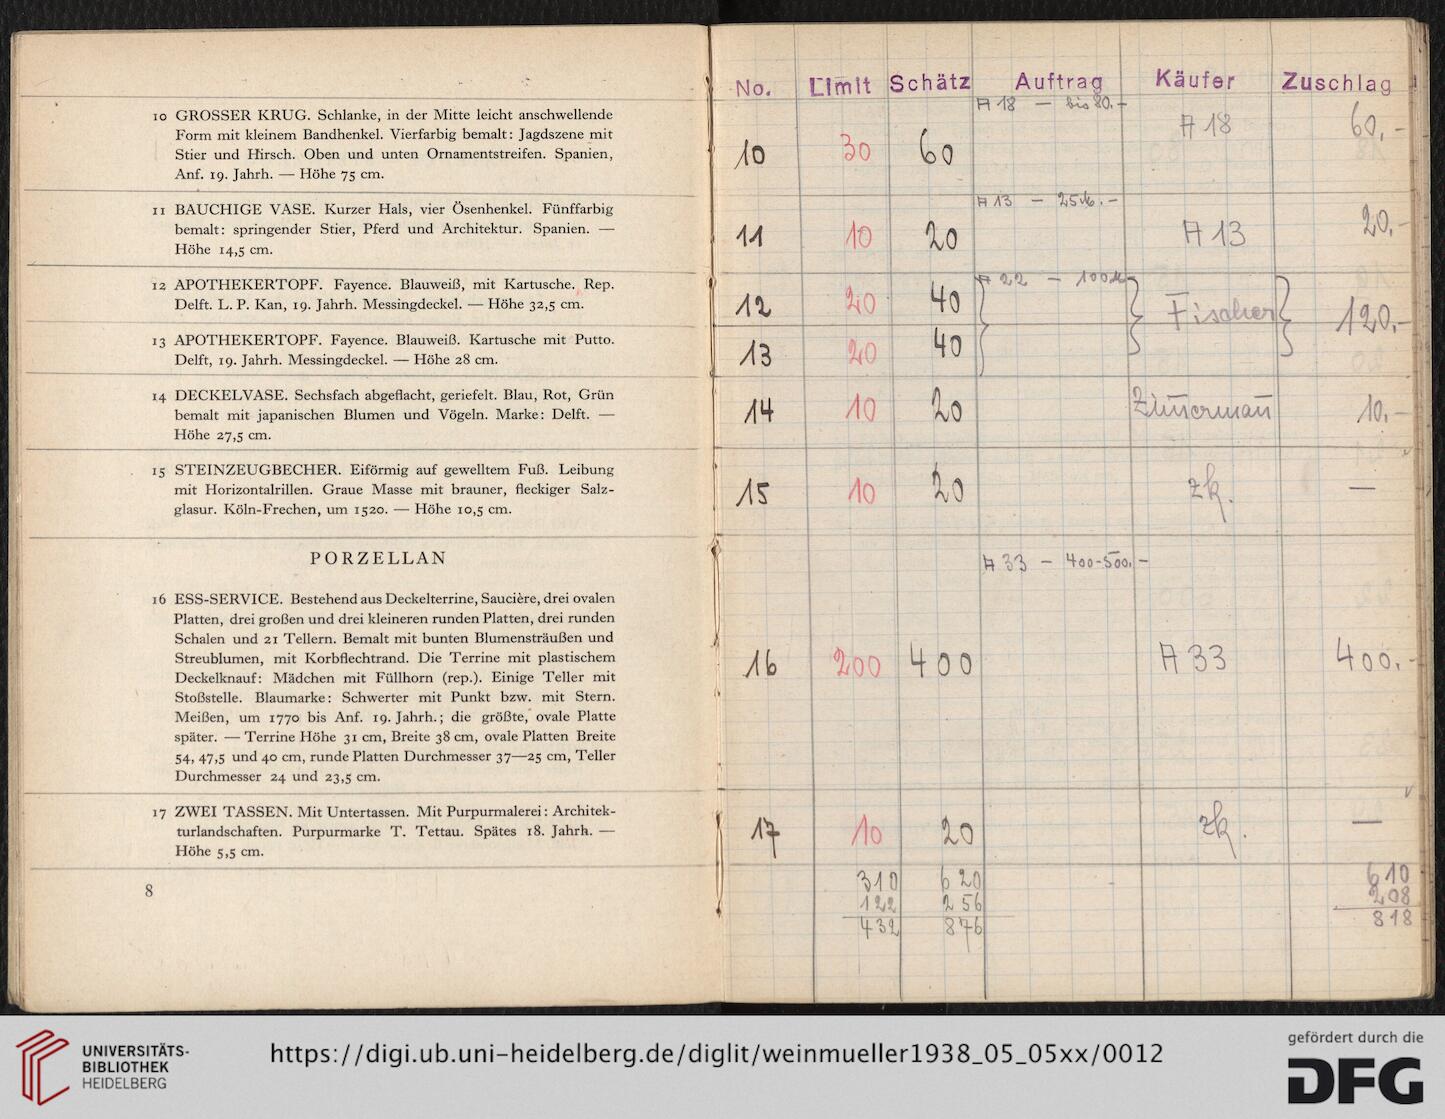 10 GROSSER KRUG. Schlanke, in der Mitte leicht anschwellende
Form mit kleinem Bandhenkel. Vierfarbig bemalt: Jagdszene mit
Stier und Hirsch. Oben und unten Ornamentstreifen. Spanien,
Anf. 19. Jahrh. — Höhe 75 cm.
11 BAUCHIGE VASE. Kurzer Hals, vier Ösenhenkel. Fünffarbig
bemalt: springender Stier, Pferd und Architektur. Spanien. —
Höhe 14,5 cm.
12 APOTHEKERTOPF. Fayence. Blauweiß, mit Kartusche. Rep.
Delft. L. P. Kan, 19. Jahrh. Messingdeckel. — Höhe 32,5 cm.
13 APOTHEKERTOPF. Fayence. Blauweiß. Kartusche mit Putto.
Delft, 19. Jahrh. Messingdeckel. — Höhe 28 cm.
14 DECKELVASE. Sechsfach abgeflacht, geriefelt. Blau, Rot, Grün
bemalt mit japanischen Blumen und Vögeln. Marke: Delft. —
Höhe 27,5 cm.
15 STEINZEUGBECHER. Eiförmig auf gewelltem Fuß. Leibung
mit Horizontalrillen. Graue Masse mit brauner, fleckiger Salz-
glasur. Köln-Frechen, um 1520. — Höhe 10,5 cm.
PORZELLAN
16 ESS-SERVICE. Bestehend aus Deckelterrine, Saucière, drei ovalen
Platten, drei großen und drei kleineren runden Platten, drei runden
Schalen und 21 Tellern. Bemalt mit bunten Blumensträußen und
Streublumen, mit Korbflechtrand. Die Terrine mit plastischem
Deckelknauf: Mädchen mit Füllhorn (rep.). Einige Teller mit
Stoßstelle. Blaumarke: Schwerter mit Punkt bzw. mit Stern.
Meißen, um 1770 bis Anf. 19. Jahrh.; die größte, ovale Platte
später. — Terrine Höhe 31 cm, Breite 38 cm, ovale Platten Breite
54, 47,5 und 40 cm, runde Platten Durchmesser 37—25 cm, Teller
Durchmesser 24 und 23,5 cm.
17 ZWEI TASSEN. Mit Untertassen. Mit Purpurmalerei: Architek-
turlandschaften. Purpurmarke T. Tettau. Spätes 18. Jahrh. —
Höhe 5,5 cm.
8
No. Limit Schätz Auftrag Käufer Zuschlag
A 18 — bis 80.-
10 30 60 A 18 60,-
A 13 — 25 .-
11 10 20 A 13 20,-
A 22 — 100
12 20 40 Fischer 120,-
13 20 40
14 10 20 Zimmermann 10,-
15 10 20 zk. —
A 33 — 400-500,-
16 200 400 A 33 400,-
17 10 20 zk. —
310 620 610
122 256 208
432 876 818
UNIVERSITÄTS-
BIBLIOTHEK
HEIDELBERG
https://digi.ub.uni-heidelberg.de/diglit/weinmueller1938_05_05xx/0012
gefördert durch die
DFG